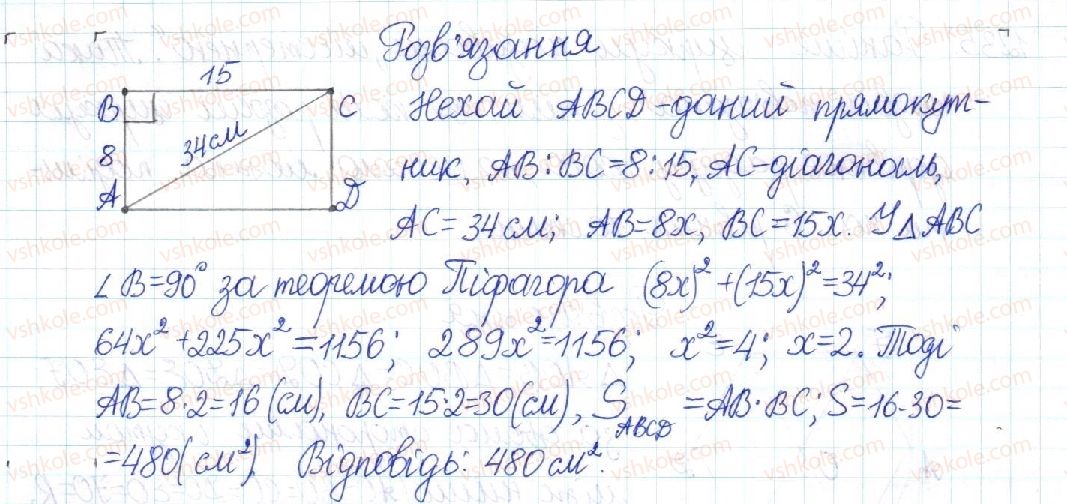 Розв'язання
15
B C
8 34 см
A D
Нехай ABCD - даний прямокут-
ник, AB : BC = 8 : 15, AC - діагональ,
AC = 34 см; AB = 8x, BC = 15x. У △ ABC
∠ B = 90° за теоремою Піфагора (8x)² + (15x)² = 34²;
64x² + 225x² = 1156; 289x² = 1156; x² = 4; x = 2. Тоді
AB = 8·2 = 16 (см), BC = 15·2 = 30 (см), S ABCD = AB · BC; S = 16·30 =
= 480 (см²). Відповідь: 480 см².